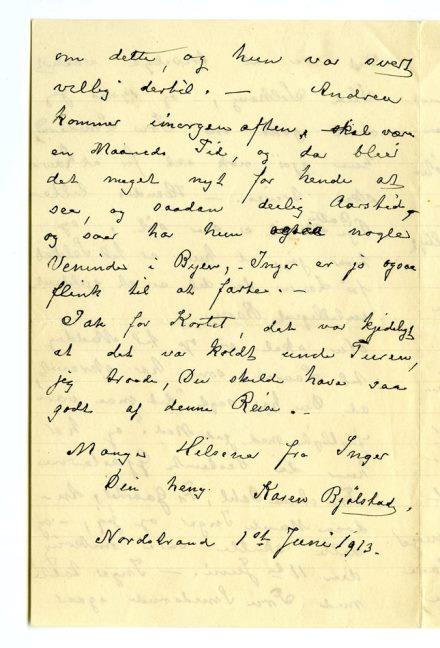 om dette, og hun var svert
villig dertil. — Andrea
kommer imorgen aften, skal være
en Maaneds Tid, og da bleiv
det meget nyt for hende at
see, og saadan deilig Aarstid,
og saa har hun ogsaa nogle
Veninder i Byen, - Inger er jo ogsaa
flink til at farte. —
Tak for Kortet, det var kjedeligt
at det var koldt under Turen,
jeg troede, Du skulde have saa
godt af denne Reise. -
Mange Hilsener fra Inger
Din heng. Karen Bjølstad,
Nordstrand 1st Juni 1913.